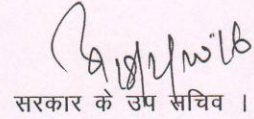 सरकार के उप सचिव ।